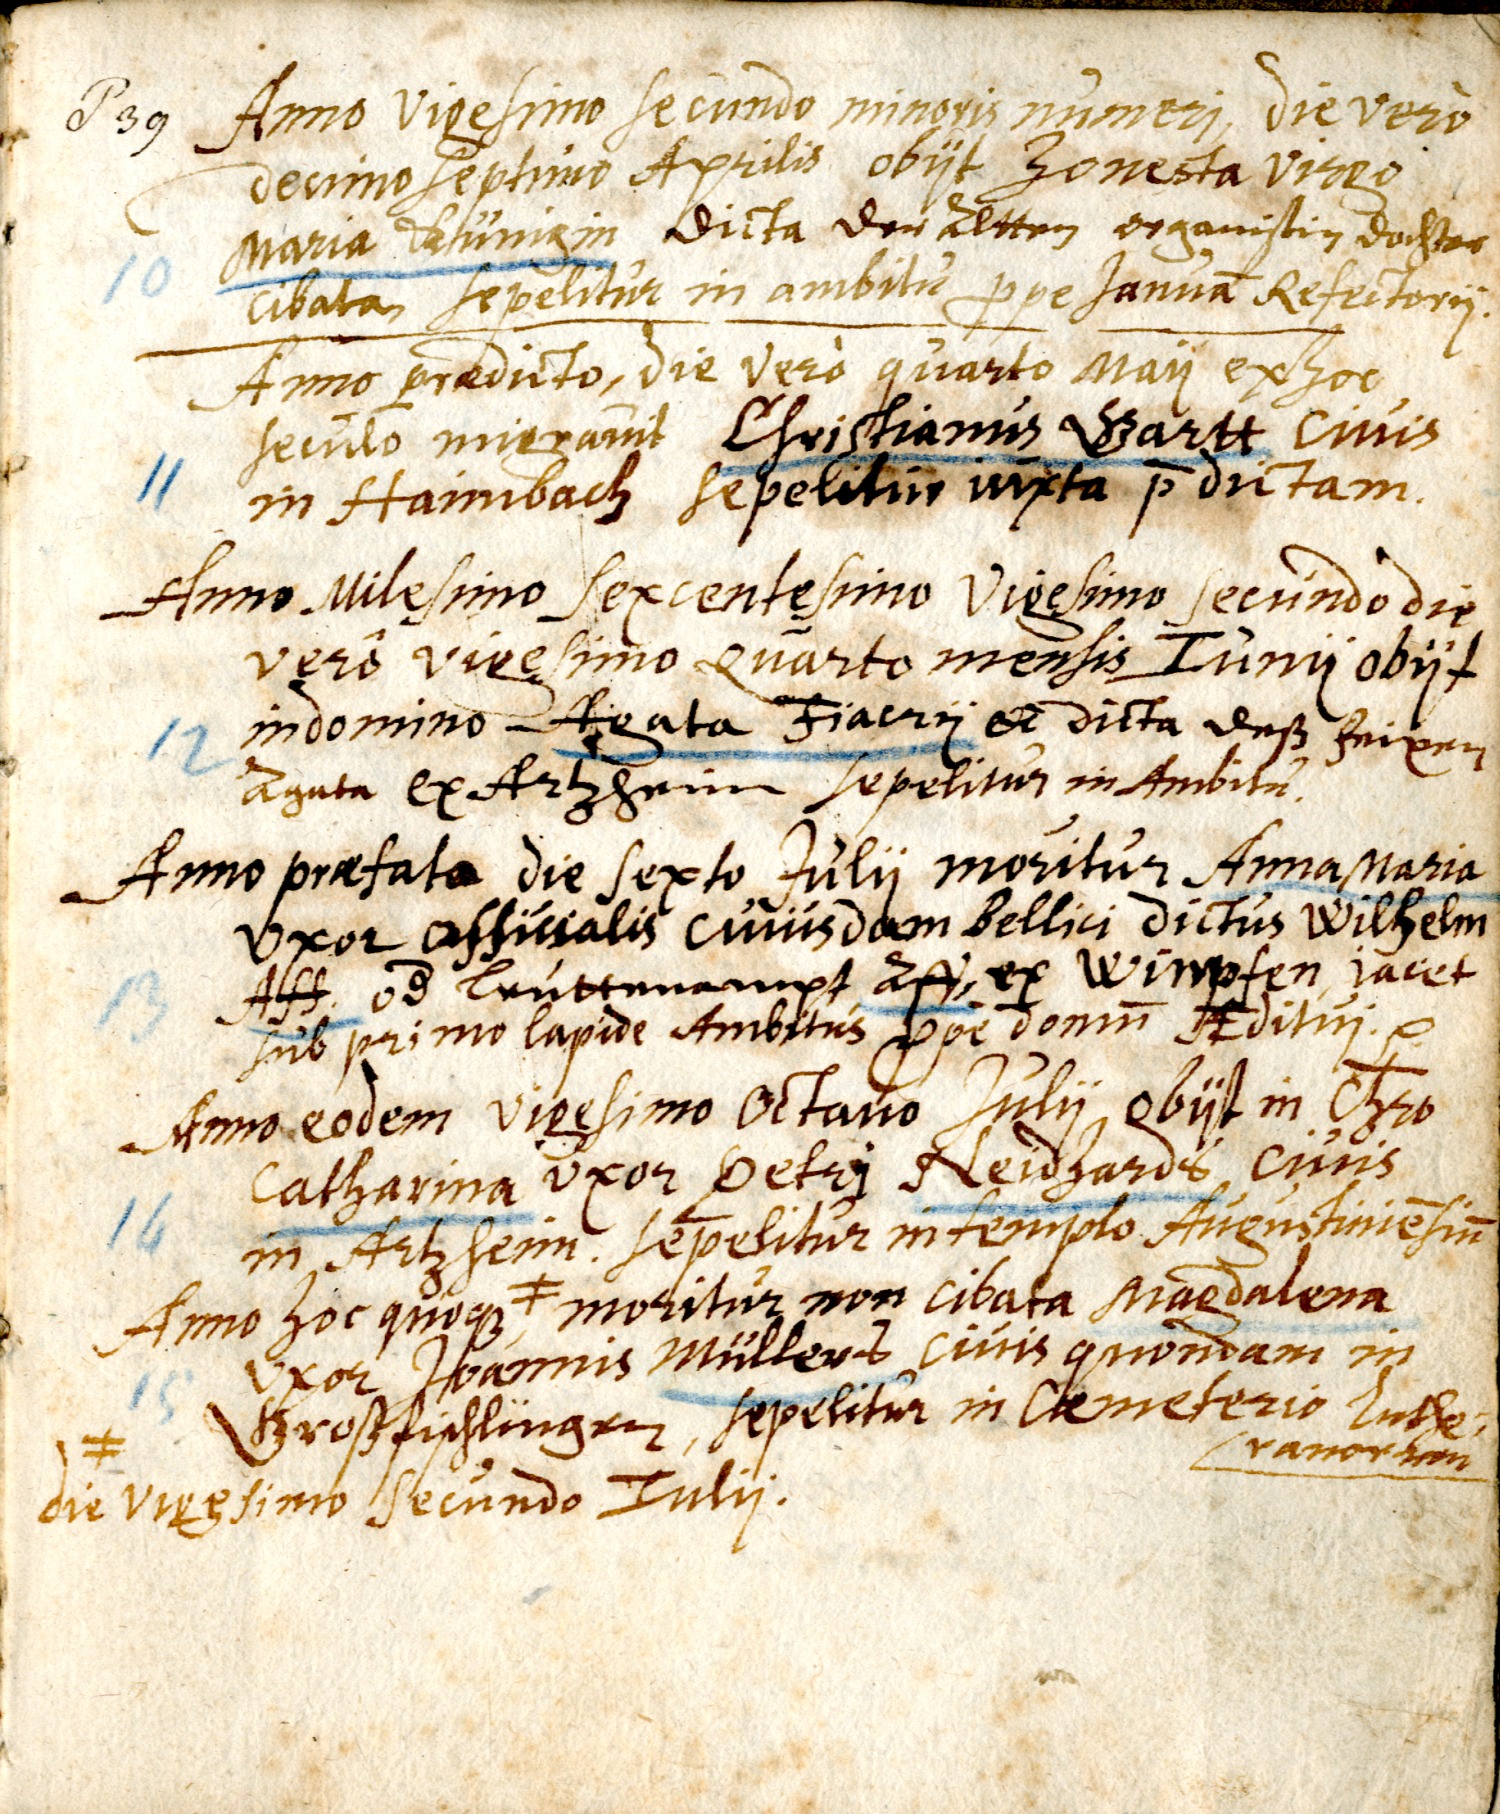 P 39 Anno vigesimo secundo minoris numerj, die verò
decimo septimo Aprilis obijt honesta virgo
10 Maria dicta der ältten organistin dochter
cibata, sepelitur in ambitu ppe Januā Refectorij.
Anno prædicto, die verò quarto Maij ex hoc
seculo migravit Christianus Gartt Ciuis
11 in Haimbach sepelitur iuxta p̄dictam.
Anno Milesimo sexcentesimo vigesimo secundo die
verô vigesimo quarto mensis Iunij obijt
12 in domino Agata Fiacrij dicta deß
Agata ex Artzheim sepelitur in Ambitu.
Anno præfato die sexto Julij moritur Anna Maria
vxor officialis cuiusdam Bellici dictus Wilhelm
13 Aff. od Leuttenampt Aff, ex Wimpfen, iacet
sub primo lapide Ambitus ppe domū Æditui.
Anno eodem vigesimo octauo Julij obijt in Chro
Catharina vxor Petrj Neidhards Ciuis
14 in Artzheim. sepelitur in templo Augustiniēsiū
Anno hoc quoq, ‡ moritur non cibata Magdalena
15 vxor Joannis Müllers Ciuis quondam in
Großfischlingen, sepelitur in Cemeterio Luthe-
ranorum
‡
die vigesimo secundo Iulij.